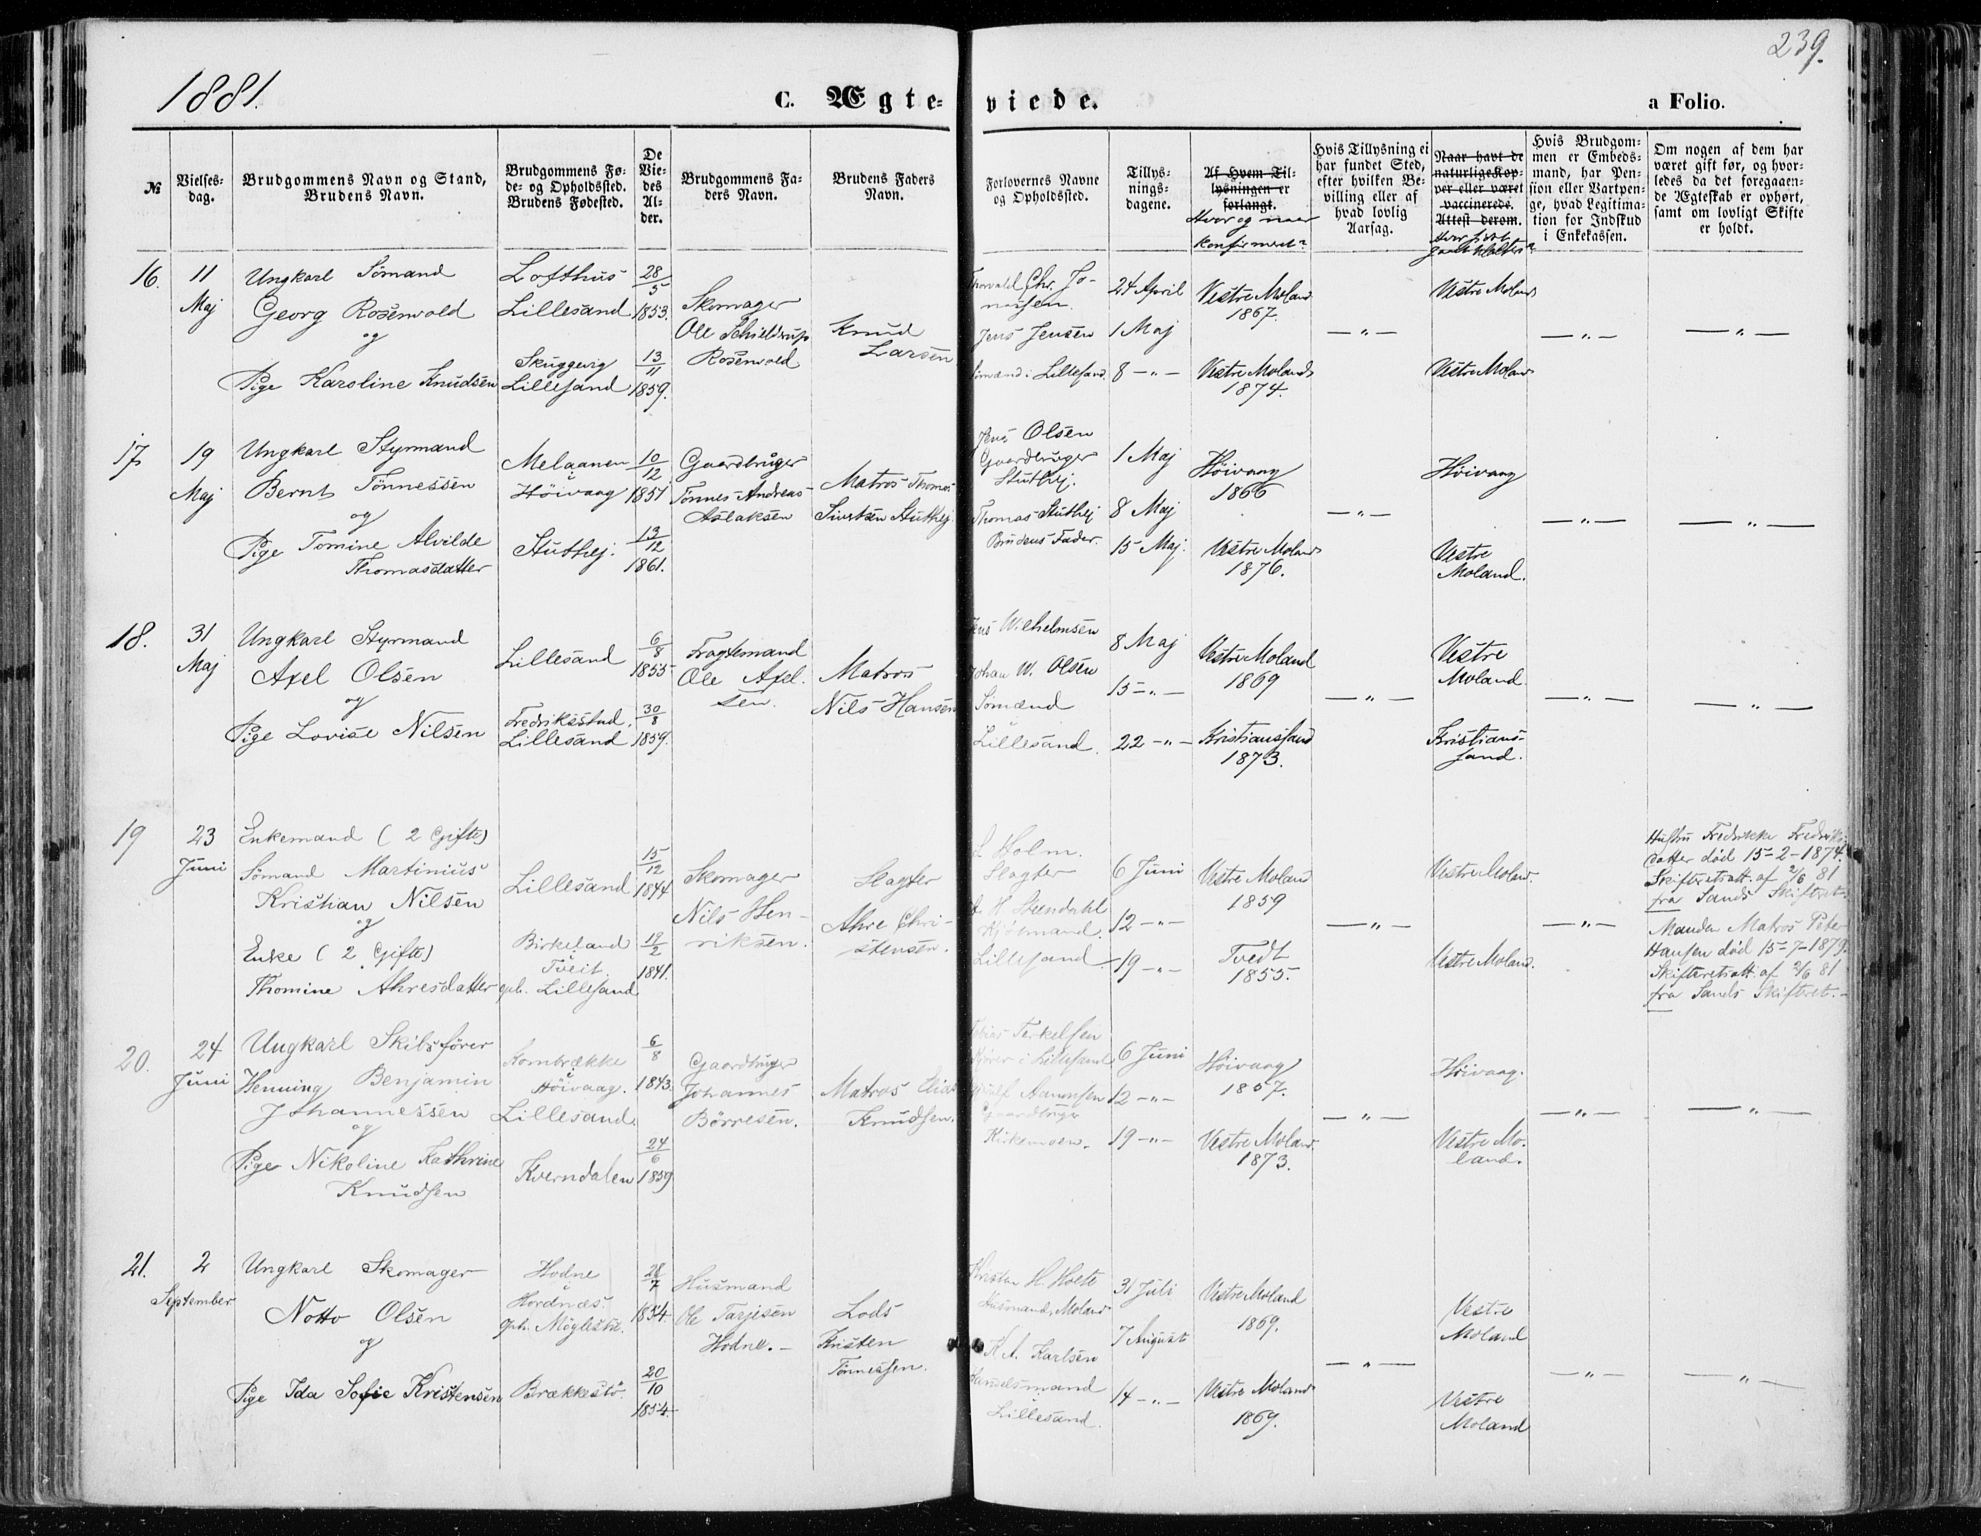 239.
1881.
C. Ægte-viede.
a Folio.
№
Vielses-
dag.
Brudgommens Navn og Stand,
Brudens Navn.
Brudgommens Fø-
de- og Opholdssted.
Brudens Fødested.
De
Vie-
des
Al-
der.
Brudgommens Fa-
ders Navn.
Brudens Faders
Navn.
Forlovernes Navne
og Opholdssted.
Tillys-
nings-
dagene.
Af Hvem Til-
lysningen er
forlangt.
Hvor og naar
konfirmert?
Hvis Tillysning ei
har fundet Sted,
efter hvilken Be-
villing eller af
hvad lovlig
Aarsag.
Naar havt de
naturlige Kop-
per eller været
vaccinerede.
Attest derom.
Hvor sidst
Hvis Brudgom-
men er Embeds-
mand, har Pen-
sion eller Vartpen-
ge, hvad Legitima-
tion for Indskud
i Enkekassen.
Om nogen af dem har
været gift før, og hvor-
ledes da det foregaaen-
de Ægteskab er ophørt,
samt om lovligt Skifte
er holdt.
16.
11
Maj
Ungkarl Sömand
Georg Rosenvold
og
Pige Karoline Knudsen
Lofthus
Lillesand
Skuggevig
Lillesand
28/5
1853.
13/11
1859.
Skomager
Ole Schieldrup
Rosenvold
Knud
Larsen
Thorvald Chr. Jo-
nassen.
Jens Jensen
Sömænd i Lillesand.
24 April
1 Maj
8 - " -
Vestre Moland
1867.
Vestre Moland
1874.
- " -
Vestre Moland
Vestre Moland
- " -
- " -
17.
19
Maj
Ungkarl Styrmand
Bernt Tönnessen
og
Pige Tomine Alvilde
Thomasdatter
Melaanen
i
Höivaag
Stuthej.
10/12
1851
13/12
1861.
Gaardbruger
Tönnes Andreas
Aslaksen
Matros Thomas
Sivertsen Stuthej
Jens Olsen
Gaardbruger
Stuthej.
Thomas Stuthej
Brudens Fader.
1 Maj
8 Maj
15 Maj.
Höivaag
1866
Vestre Moland
1876.
- " -
Höivaag
Vestre
Moland.
- " -
- " -
18.
31
Maj
Ungkarl Styrmand
Axel Olsen
og
Pige Lovise Nilsen
Lillesand
Fredriksstad,
Lillesand
6/8
1855
30/8
1859.
Fragtemand
Ole Axel-
sen.
Matros
Nils Hansen
Jens Wilhelmsen
Johan W. Olsen
Sömænd
Lillesand.
8 Maj
15 - " -
22 - " -
Vestre Moland
1869
Kristianssand
1873.
- " -
Vestre
Moland.
Kristians-
sand.
- " -
- " -
19
23
Juni
Enkemand ( 2 Gifte)
Sömand Martinius
Kristian Nilsen
og
Enke ( 2 Gifte)
Thomine Ahresdatter
Lillesand
Birkeland
i
Tveit.
oph. Lillesand
15/12
1844
19/2
1841.
Skomager
Nils Hen-
riksen.
Slagter
Ahre Chri-
stensen.
L Holm.
Slagter
H. Steendahl
Lillesand
6 Juni
12 - " -
19 - " -
Vestre Moland
1859
Tvedt
1855.
- " -
Vestre Moland.
Vestre Moland.
- " -
Hustru Fredrikke Fredriks
datter död 15-2-1874.
Skifteretsatt. af 2/6 81
fra Sands Skifteret.
Manden Matros Peter
Hansen död 15-7-1879.
Skifteretsatt. af 2/6 81
fra Sands Skifteret.-
20.
24
Juni
Ungkarl Skibsförer
Henning Benjamin
Johannessen
og
Pige Nikoline Kathrine
Knudsen
Kornbrække
i
Höivaag.
Lillesand.
Kverndalen
6/8
1843.
24/6
1859
Gaardbruger
Johannes
Börresen.
Matros Elias
Knudsen.
Tobias Terkelsen
i Lillesand
Aanonsen
Gaardbruger
Kirkemoen.
6 Juni
12 - " -
19 - " -
Höivaag
1857.
Vestre Moland.
1873.
- " -
Höivaag.
Vestre Mo-
land.
- " -
- " -
21.
2
September
Ungkarl Skomager
Notto Olsen
og
Pige Ida Sofie Kristensen
Hodne
i
Hordnæs.
oph. Möglestu.
Brækkestö.
28/7
1854.
20/10
1854.
Husmand
Ole Tarjesen
Hodne.-
Lods
Kristen
Tönnessen.
Kristen H.
Husmand, Moland
K. A. Karlsen
Handelsmand
Lillesand.
31 Juli
7 August
14 - " -
Vestre Moland
1869.
Vestre Moland
1869.
- " -
Vestre
Moland
Vestre
Moland
- " -
- " -